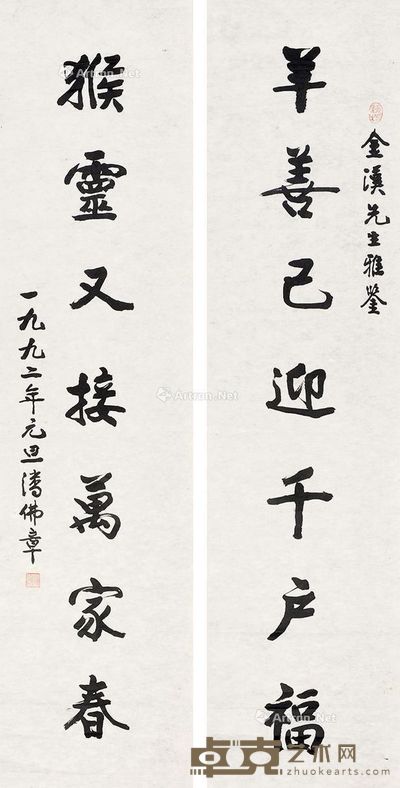 金溪先生雅鑒
羊善已迎千户福
猴靈又接萬家春
一九九二年元旦潘佛章
Artron.Net
Artron.Net
Artron.Net
Artron.Net
Artron.Net
卓克艺术网
zhuokearts.com